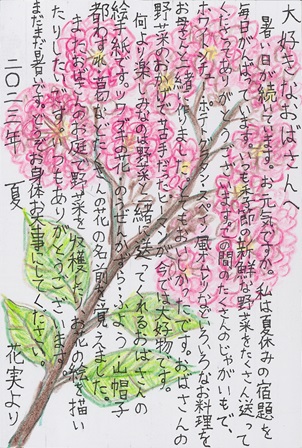 大好きなおばさんへ
暑い日が続いてますが、お元気ですか。私は夏休みの宿題を
毎日がんばっています。いつも季節の新鮮な野菜をたくさん送って
くださりありがとうございます。この間のたくさんのじゃがいもで、
ポテトグラタン、スペイン風オムレツなどいろいろなお料理を
お母さんと一緒に作りました。とてもおいしかったです。おばさんの
野菜のおかげで苦手だったピーマンが今では大好物です。
何より楽しみなのは野菜と一緒に送ってくれるおばさんの
絵手紙です。ツワブキの花、のうぜんかずら、ふよう、山帽子
都わすれ、葛などたくさんの花の名前を覚えました。
またおばさんのお庭で野菜を収穫したりお花の絵を描い
たりしたいです。いつもありがとうございます。
まだまだ暑いです。どうぞお身体お大事にしてください
二〇二三年 夏
花実より